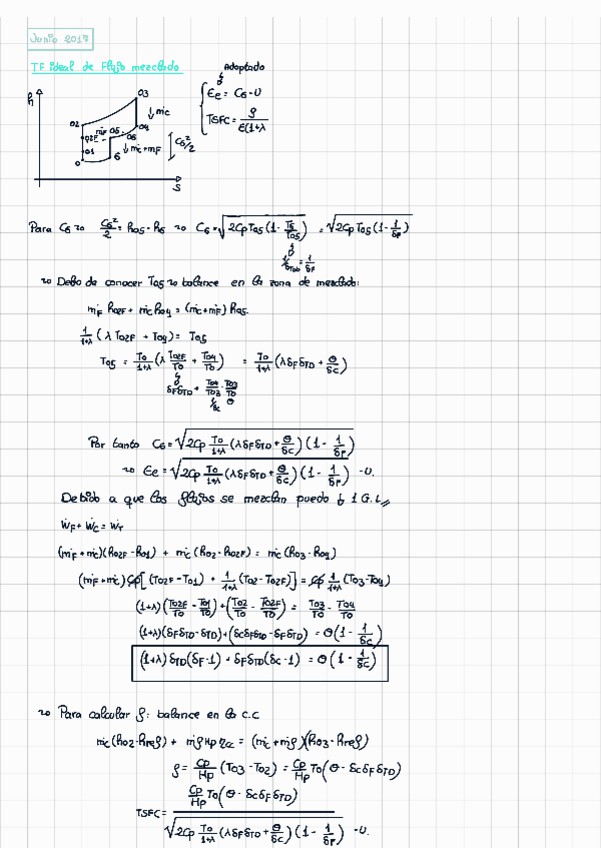 Junio 2017
TF ideal de Flujo mezclado
Adaptado
Ɛe = C6 - U
TSFC = ρ / Ɛ(1+λ
h
03
↓ṁc
02
04
ṁF 05
02F
06
01
↓ṁc+ṁF
C6²/2
0
6
S
Para C6 ⇝ C6²/2 = h05 - h6 ⇝ C6 = √(2Cp T05 (1 - T6/T05)) = √(2Cp T05 (1 - 1/δF))
= 1/δF
⇝ Debo de conocer T05 ⇝ balance en la zona de mezclado:
ṁF h02F + ṁc h04 = (ṁc+ṁF) h05.
1/1+λ (λ T02F + T04) = T05
T05 = T0/1+λ (λ T02F/T0 + T04/T0) = T0/1+λ (λ δF δTD + θ/δC)
δF δTD + T04/T03 · T03/T0
1/δC θ
Por tanto C6 = √(2Cp T0/1+λ (λ δF δTD + θ/δC) (1 - 1/δF))
⇝ Ɛe = √(2Cp T0/1+λ (λ δF δTD + θ/δC) (1 - 1/δF)) - U.
Debido a que los flujos se mezclan puedo ↓ 1 G.L //
ẆF + ẆC = ẆT
(ṁF + ṁc)(h02F - h01) + ṁc (h02 - h02F) = ṁc (h03 - h04)
(ṁF + ṁc) Cp [(T02F - T01) + 1/1+λ (T02 - T02F)] = Cp 1/1+λ (T03 - T04)
(1+λ) (T02F/T0 - T01/T0) + (T02/T0 - T02F/T0) = T03/T0 - T04/T0
(1+λ)(δF δTD - δTD) + (δC δF δTD - δF δTD) = θ (1 - 1/δC)
(1+λ) δTD (δF - 1) + δF δTD (δC - 1) = θ (1 - 1/δC)
⇝ Para calcular ρ: balance en la C.C
ṁc (h02 - href) + ṁf Hp ηcc = (ṁc + ṁf)(h03 - href)
ρ = Cp/Hp (T03 - T02) = Cp/Hp T0 (θ - δC δF δTD)
Cp/Hp T0 (θ - δC δF δTD)
TSFC =
√(2Cp T0/1+λ (λ δF δTD + θ/δC) (1 - 1/δF)) - U.